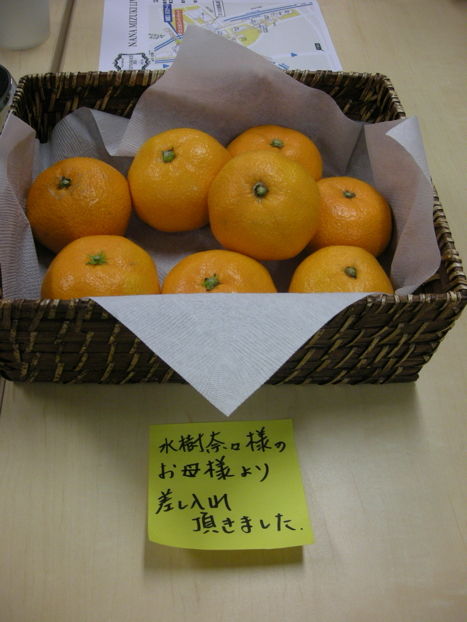 NANA MIZUKI LI
水樹奈々様の
お母様より
差し入れ
頂きました.